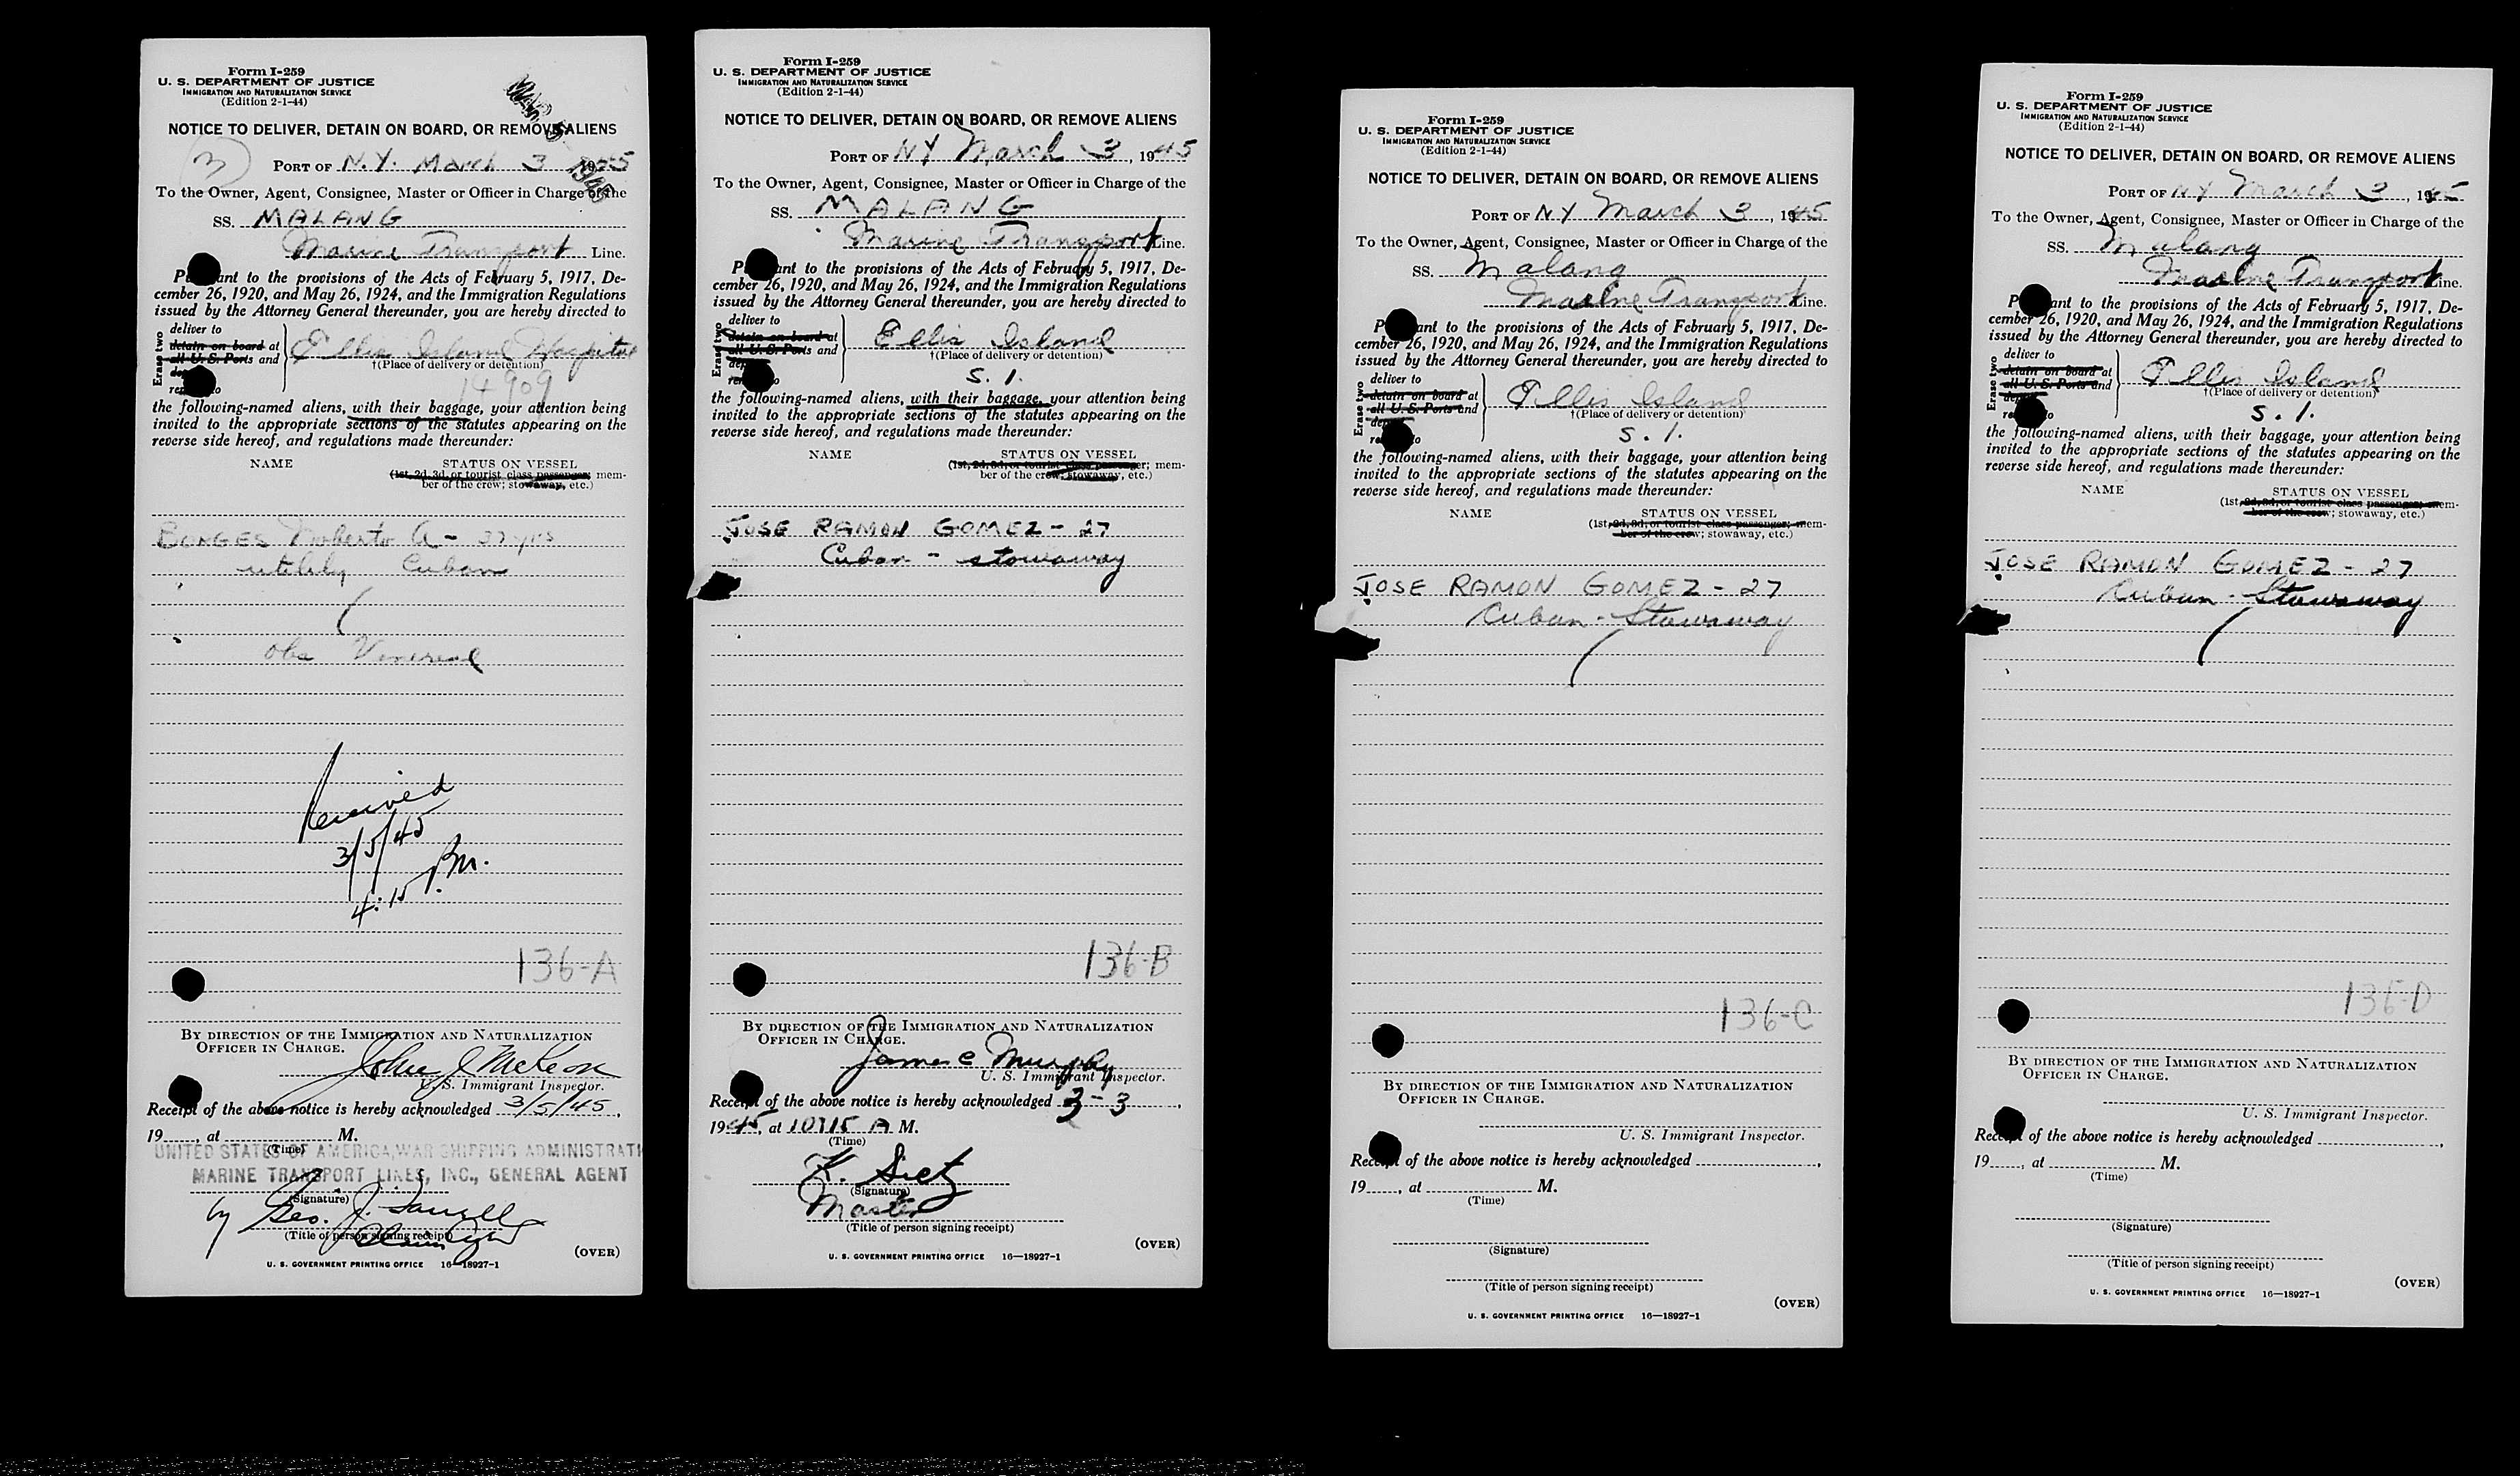 Form I-259
U. S. DEPARTMENT OF JUSTICE
IMMIGRATION AND NATURALIZATION SERVICE
(Edition 2-1-44)
MAR 5 1945
NOTICE TO DELIVER, DETAIN ON BOARD, OR REMOVE ALIENS
3
PORT OF N.Y. March 3 1945
To the Owner, Agent, Consignee, Master or Officer in Charge of the
SS. MALANG
Marine Transport Line.
P ant to the provisions of the Acts of February 5, 1917, De-
cember 26, 1920, and May 26, 1924, and the Immigration Regulations
issued by the Attorney General thereunder, you are hereby directed to
Erase two
deliver to
detain on board at
all U. S. Ports and
Ellis Island Hospital
†(Place of delivery or detention)
14909
the following-named aliens, with their baggage, your attention being
invited to the appropriate sections of the statutes appearing on the
reverse side hereof, and regulations made thereunder:
NAME STATUS ON VESSEL
(1st, 2d, 3d, or tourist class passenger; mem-
ber of the crew; stowaway, etc.)
BORGES Roberto A - 37 yrs
utility Cuban
obs Venereal
Received
3/5/45
4:15 P.M.
136-A
BY DIRECTION OF THE IMMIGRATION AND NATURALIZATION
OFFICER IN CHARGE.
John J McKeon
U. S. Immigrant Inspector.
Receipt of the above notice is hereby acknowledged 3/5/45,
19 , at M.
(Time)
UNITED STATES OF AMERICA, WAR SHIPPING ADMINISTRATI
MARINE TRANSPORT LINES, INC., GENERAL AGENT
(Signature)
by Geo. J.
(Title of person signing receipt)
(OVER)
U. S. GOVERNMENT PRINTING OFFICE 16—18927-1
Form I-259
U. S. DEPARTMENT OF JUSTICE
IMMIGRATION AND NATURALIZATION SERVICE
(Edition 2-1-44)
NOTICE TO DELIVER, DETAIN ON BOARD, OR REMOVE ALIENS
PORT OF NY March 3, 1945
To the Owner, Agent, Consignee, Master or Officer in Charge of the
SS. MALANG
Marine Transport Line.
P ant to the provisions of the Acts of February 5, 1917, De-
cember 26, 1920, and May 26, 1924, and the Immigration Regulations
issued by the Attorney General thereunder, you are hereby directed to
Erase two
deliver to
detain on board at
all U. S. Ports and
Ellis Island
†(Place of delivery or detention)
S. I.
the following-named aliens, with their baggage, your attention being
invited to the appropriate sections of the statutes appearing on the
reverse side hereof, and regulations made thereunder:
NAME STATUS ON VESSEL
(1st, 2d, 3d, or tourist class passenger; mem-
ber of the crew; stowaway, etc.)
JOSE RAMON GOMEZ - 27
Cuban - stowaway
136-B
BY DIRECTION OF THE IMMIGRATION AND NATURALIZATION
OFFICER IN CHARGE.
James C Murphy
U. S. Immigrant Inspector.
Receipt of the above notice is hereby acknowledged 3-3,
1945, at 10:15 A M.
(Time)
(Signature)
Master
(Title of person signing receipt)
(OVER)
U. S. GOVERNMENT PRINTING OFFICE 16—18927-1
Form I-259
U. S. DEPARTMENT OF JUSTICE
IMMIGRATION AND NATURALIZATION SERVICE
(Edition 2-1-44)
NOTICE TO DELIVER, DETAIN ON BOARD, OR REMOVE ALIENS
PORT OF NY March 3, 1945
To the Owner, Agent, Consignee, Master or Officer in Charge of the
SS. Malang
Marine Transport Line.
P ant to the provisions of the Acts of February 5, 1917, De-
cember 26, 1920, and May 26, 1924, and the Immigration Regulations
issued by the Attorney General thereunder, you are hereby directed to
Erase two
deliver to
detain on board at
all U. S. Ports and
Ellis Island
†(Place of delivery or detention)
S. I.
the following-named aliens, with their baggage, your attention being
invited to the appropriate sections of the statutes appearing on the
reverse side hereof, and regulations made thereunder:
NAME STATUS ON VESSEL
(1st, 2d, 3d, or tourist class passenger; mem-
ber of the crew; stowaway, etc.)
JOSE RAMON GOMEZ - 27
Cuban - Stowaway
136-C
BY DIRECTION OF THE IMMIGRATION AND NATURALIZATION
OFFICER IN CHARGE.
U. S. Immigrant Inspector.
Receipt of the above notice is hereby acknowledged ,
19 , at M.
(Time)
(Signature)
(Title of person signing receipt)
(OVER)
U. S. GOVERNMENT PRINTING OFFICE 16—18927-1
Form I-259
U. S. DEPARTMENT OF JUSTICE
IMMIGRATION AND NATURALIZATION SERVICE
(Edition 2-1-44)
NOTICE TO DELIVER, DETAIN ON BOARD, OR REMOVE ALIENS
PORT OF NY March 3, 1945
To the Owner, Agent, Consignee, Master or Officer in Charge of the
SS. Malang
Marine Transport Line.
P ant to the provisions of the Acts of February 5, 1917, De-
cember 26, 1920, and May 26, 1924, and the Immigration Regulations
issued by the Attorney General thereunder, you are hereby directed to
Erase two
deliver to
detain on board at
all U. S. Ports and
Ellis Island
†(Place of delivery or detention)
S. I.
the following-named aliens, with their baggage, your attention being
invited to the appropriate sections of the statutes appearing on the
reverse side hereof, and regulations made thereunder:
NAME STATUS ON VESSEL
(1st, 2d, 3d, or tourist class passenger; mem-
ber of the crew; stowaway, etc.)
JOSE RAMON GOMEZ - 27
Cuban - Stowaway
136-D
BY DIRECTION OF THE IMMIGRATION AND NATURALIZATION
OFFICER IN CHARGE.
U. S. Immigrant Inspector.
Receipt of the above notice is hereby acknowledged ,
19 , at M.
(Time)
(Signature)
(Title of person signing receipt)
(OVER)
U. S. GOVERNMENT PRINTING OFFICE 16—18927-1